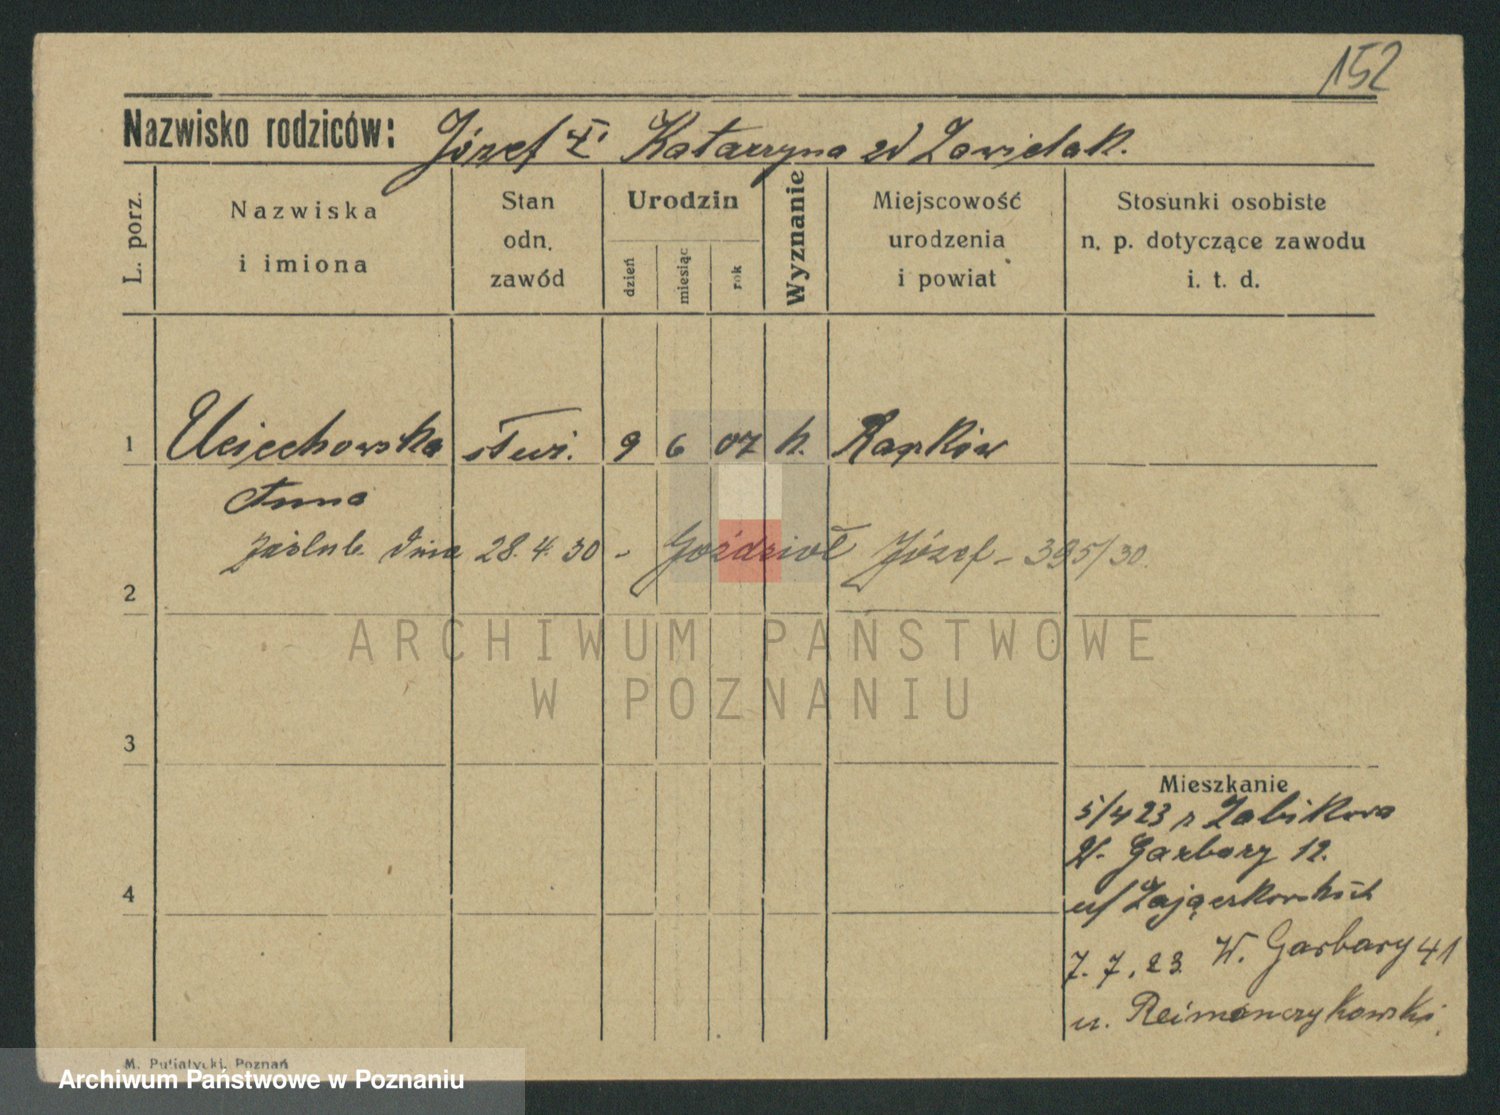 152
Nazwisko rodziców: Józef i Katarzyna zd Zawielak.
L. porz.
Nazwiska
i imiona
Stan
odn.
zawód
Urodzin
dzień
miesiąc
rok
Wyznanie
Miejscowość
urodzenia
i powiat
Stosunki osobiste
n. p. dotyczące zawodu
i. t. d.
1 Uciechowska służ. 9 6 07 k. Rapków
Anna
zaślub. dnia 28.4.30 - Goździoł Józef - 395/30.
2
ARCHIWUM PAŃSTWOWE
W POZNANIU
3
Mieszkanie
5/4 23 z Żabikowa
W. Garbary 12.
4
u/ Zajączkowskich
7.7.23 W. Garbary 41
u. Reimanczykowski
M. Putiatycki, Poznań
Archiwum Państwowe w Poznaniu